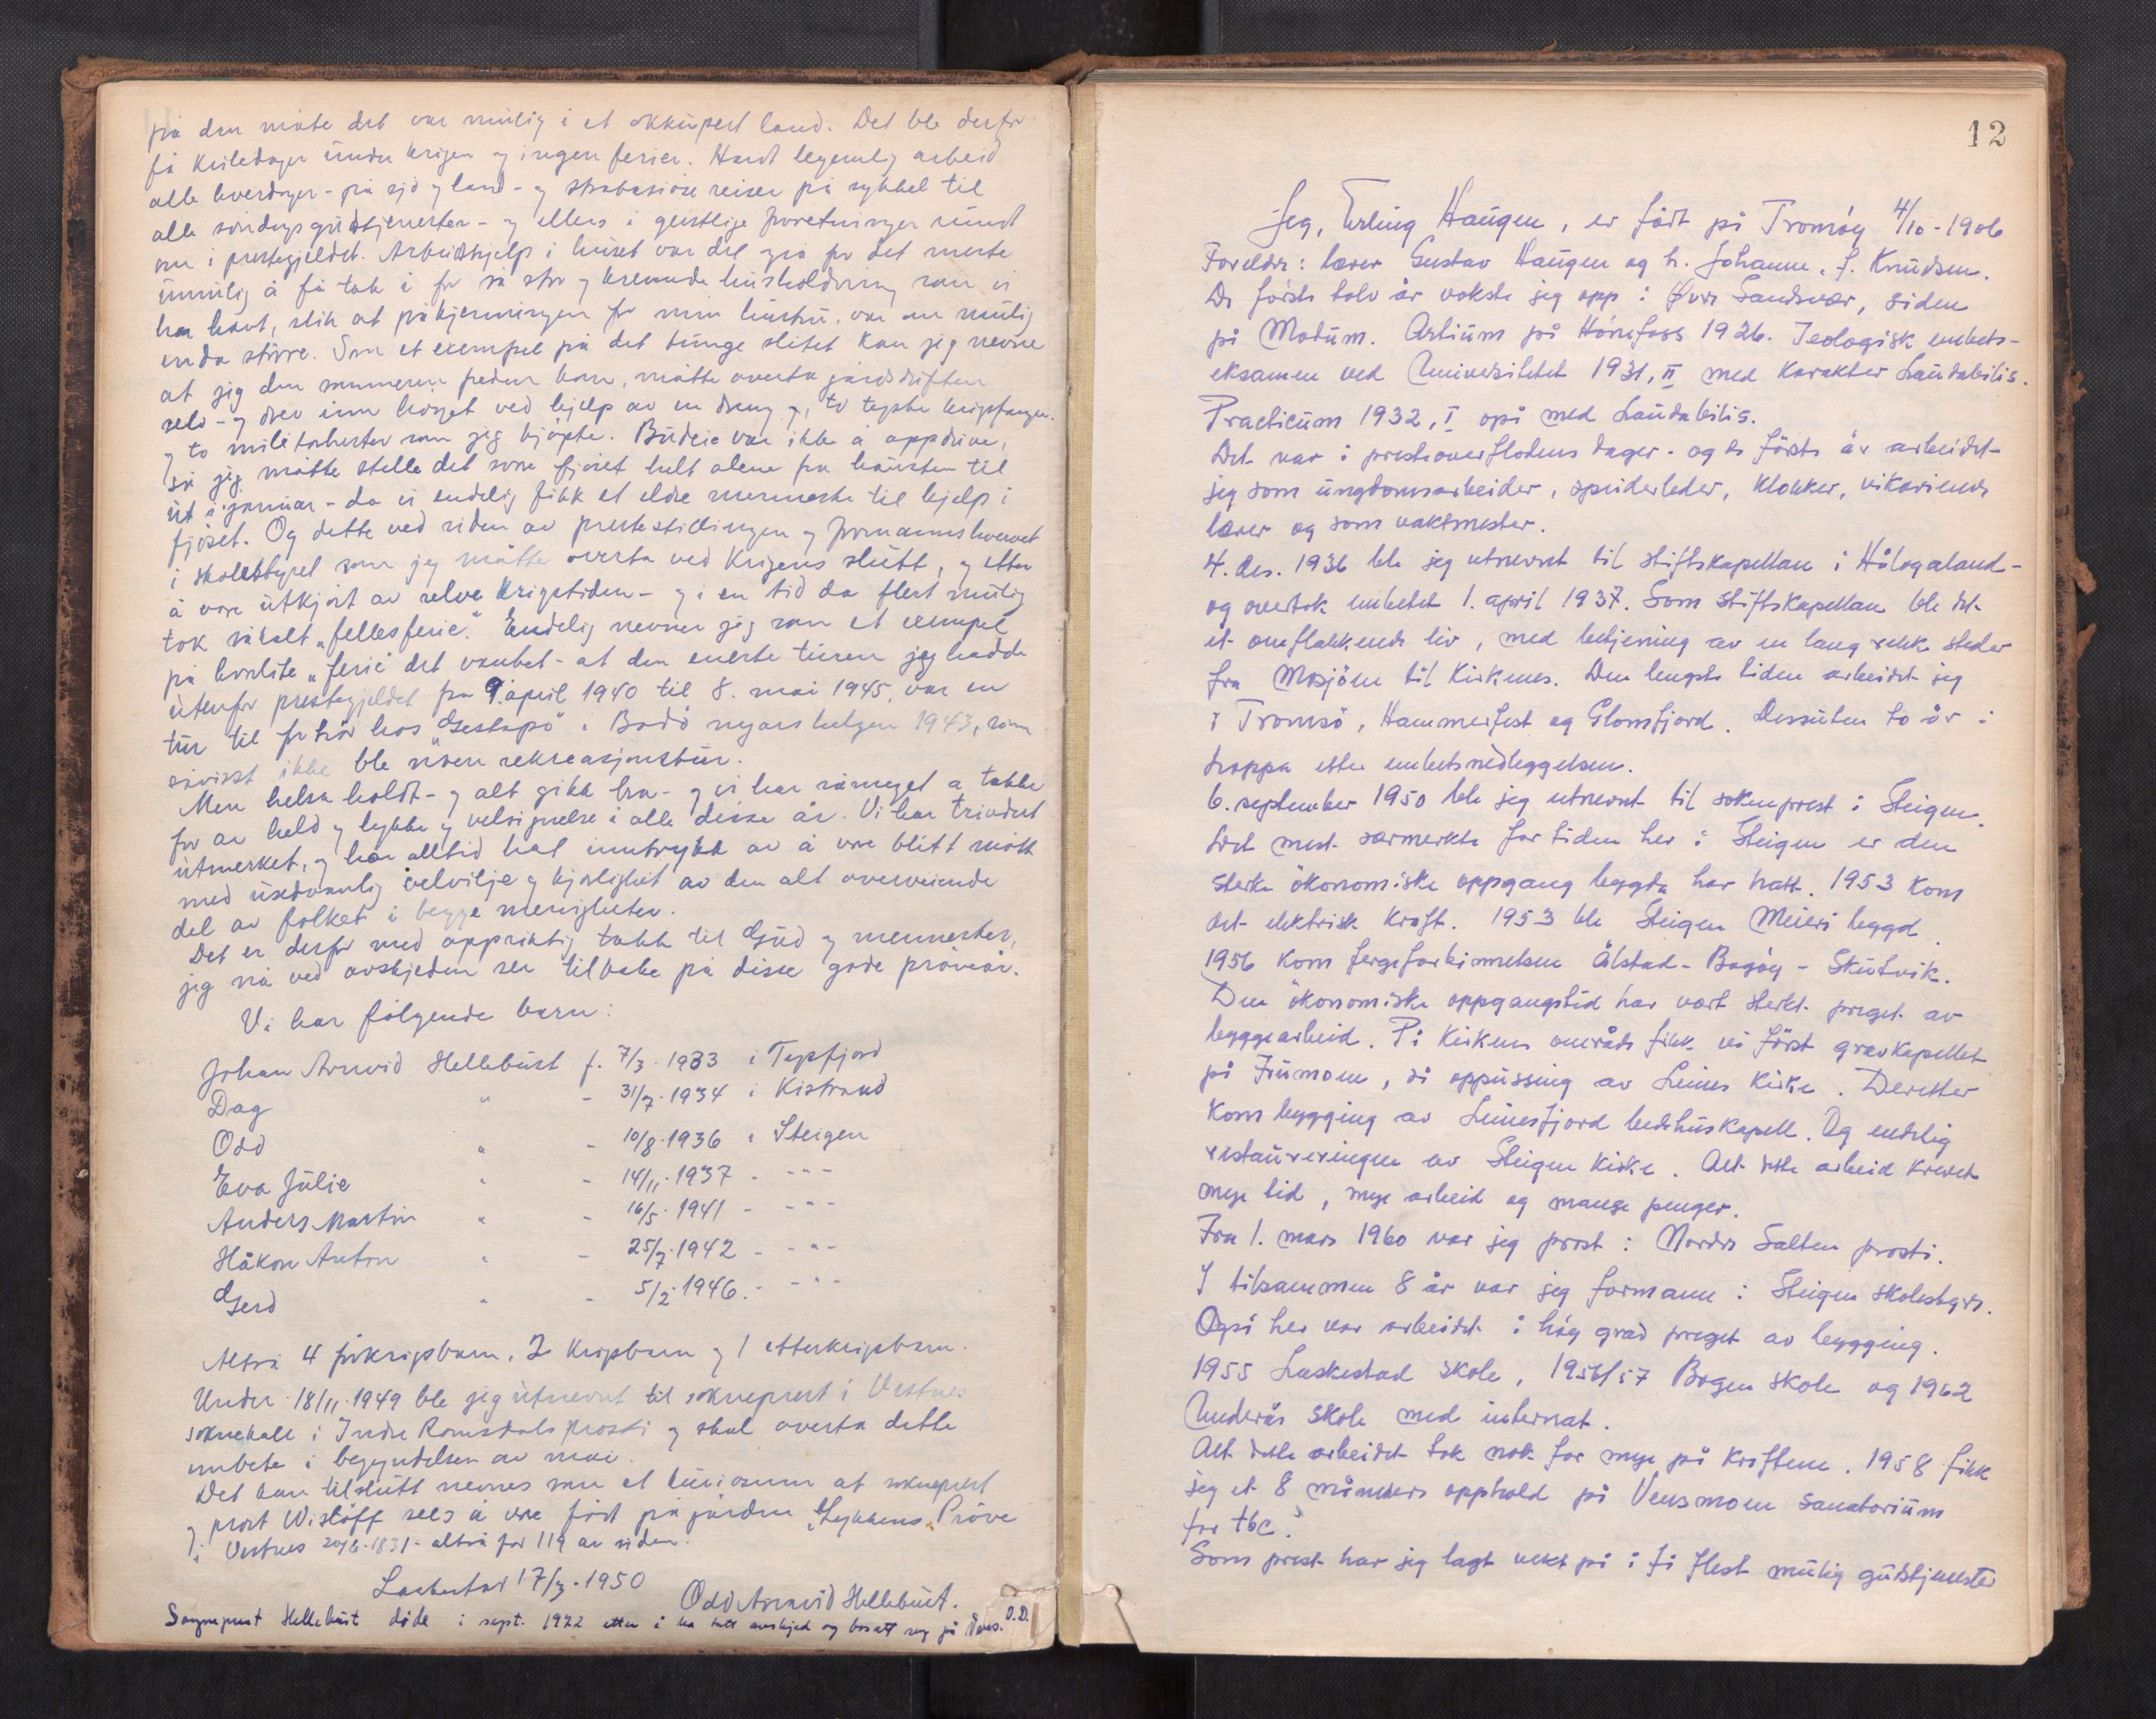 på den måte det var mulig i et okkupert land. Det ble derfor
få hviledager under krigen og ingen ferier. Hardt legemlig arbeid
alle hverdager - på sjø og land - og strabasiøse reiser på sykkel til
alle søndagsgudstjenester - og ellers i geistlige forretninger rundt
om i prestegjeldet. Arbeidshjelp i huset var det også for det meste
umulig å få tak i for så stor og krevende husholdning som vi
har havt, slik at påkjenningen for min hustru, var om mulig
enda større. Som et exempel på det tunge slitet kan jeg nevne
at jeg den sommeren freden kom, måtte overta gårdsdriften
selv - og drev inn høyet ved hjelp av en dreng og to tyske krigsfanger
og to militærhester som jeg kjøpte. Budeie var ikke å oppdrive,
så jeg måtte stelle det store fjøset helt alene fra høsten til
ut i januar - da vi endelig fikk et eldre menneske til hjelp i
fjøset. Og dette ved siden av prestestillingen og formannshvervet
i skolestyret som jeg måtte overta ved Krigens slutt, og etter
å være utkjørt av selve Krigstiden - og i en tid da flest mulig
tok såkalt "fellesferie." Endelig nevner jeg som et exempel
på hvor lite "ferie" det vanket - at den eneste turen jeg hadde
utenfor prestegjeldet fra 9. april 1940 til 8. mai 1945, var en
tur til forhør hos "Gestapo" i Bodø nyårshelgen 1943, som
såvisst ikke ble noen rekreasjonstur.
Men helsa holdt - og alt gikk bra - og vi har så meget å takke
for av held og lykke og velsignelse i alle disse år. Vi har trivdest
utmerket, og har alltid hat inntrykk av å være blitt møtt
med usedvanlig velvilje og kjærlighet av den alt overveiende
del av folket i begge menigheter.
Det er derfor med oppriktig takk til Gud og mennesker,
jeg nå ved avskjeden ser tilbake på disse gode prøveår.
Vi har følgende barn:
Johan Arnvid Hellebust f. 7/3. 1933 i Tysfjord
Dag " - 31/7. 1934 i Kistrand
Odd " - 10/8. 1936 i Steigen
Eva Julie " - 14/11. 1937 - - " -
Anders Martin " - 16/5. 1941 - - " -
Håkon Anton " - 25/7. 1942 - - " -
Gerd " - 5/2. 1946. - - " -
Altså 4 førkrigsbarn, 2 krigsbarn og 1 etterkrigsbarn.
Under 18/11. 1949 ble jeg utnevnt til sokneprest i Vestnes
soknekall i Indre Romsdals prosti og skal overta dette
embete i begynnelsen av mai.
Det kan tilslutt nevnes som et kuriosum at sokneprest
og prost Wisløff sees å være født på gården "Lykkens Prøve"
i Vestnes 20/6. 1831 - altså for 119 år siden.
Laskestad 17/3. 1950 Odd Arnvid Hellebust.
Sogneprest Hellebust døde i sept. 1972 etter å ha tatt avskjed og bosatt seg på Voss. O.D.
12
Jeg, Erling Haugen, er født på Tromøy 4/10 - 1906
Foreldre: lærer Gustav Haugen og h. Johanne, f. Knudsen.
De første tolv år vokste jeg opp i Øvre Sandsvær, siden
på Modum. Artium på Hønefoss 1926. Teologisk embets-
eksamen ved Universitetet 1931, II med karakter Laudabilis.
Practicum 1932, I også med Laudabilis.
Det var i presteoverflodens dager - og de første år arbeidet
jeg som ungdomsarbeider, speiderleder, klokker, vikarierende
lærer og som vaktmester.
4. des. 1936 ble jeg utnevnt til stiftskapellan i Hålogaland -
og overtok embetet 1. april 1937. Som stiftskapellan ble det
et omflakkende liv, med betjening av en lang rekke steder
fra Mosjøen til Kirkenes. Den lengste tiden arbeidet jeg
i Tromsø, Hammerfest og Glomfjord. Dessuten to år i
Loppa etter embetsnedleggelsen.
6. september 1950 ble jeg utnevnt til sokneprest i Steigen.
Det mest særmerkte for tiden her i Steigen er den
sterke økonomiske oppgang bygda har hatt. 1953 kom
det elektrisk kraft. 1953 ble Steigen Meieri bygd.
1956 kom fergeforbinnelsen Ålstad - Bogøy - Skutvik.
Den økonomiske oppgangstid har vært sterkt preget av
byggearbeid. På Kirkens område fikk vi først gravkapellet
på Furumoen, så oppussing av Leines kirke. Deretter
kom bygging av Leinesfjord bedehuskapell. Og endelig
restaureringen av Steigen kirke. Alt dette arbeid krevet
mye tid, mye arbeid og mange penger.
Fra 1. mars 1960 var jeg prost i Nordre Salten prosti.
I tilsammen 8 år var jeg formann i Steigen skolestyre.
Også her var arbeidet i høy grad preget av bygging.
1955 Laskestad skole, 1956/57 Bogen skole og 1962
Nuderås skole med internat.
Alt dette arbeidet tok nok for mye på kreftene. 1958 fikk
jeg et 8 måneders opphold på Vensmoen sanatorium
for tbc.
Som prest har jeg lagt vekt på å få flest mulig gudstjenester